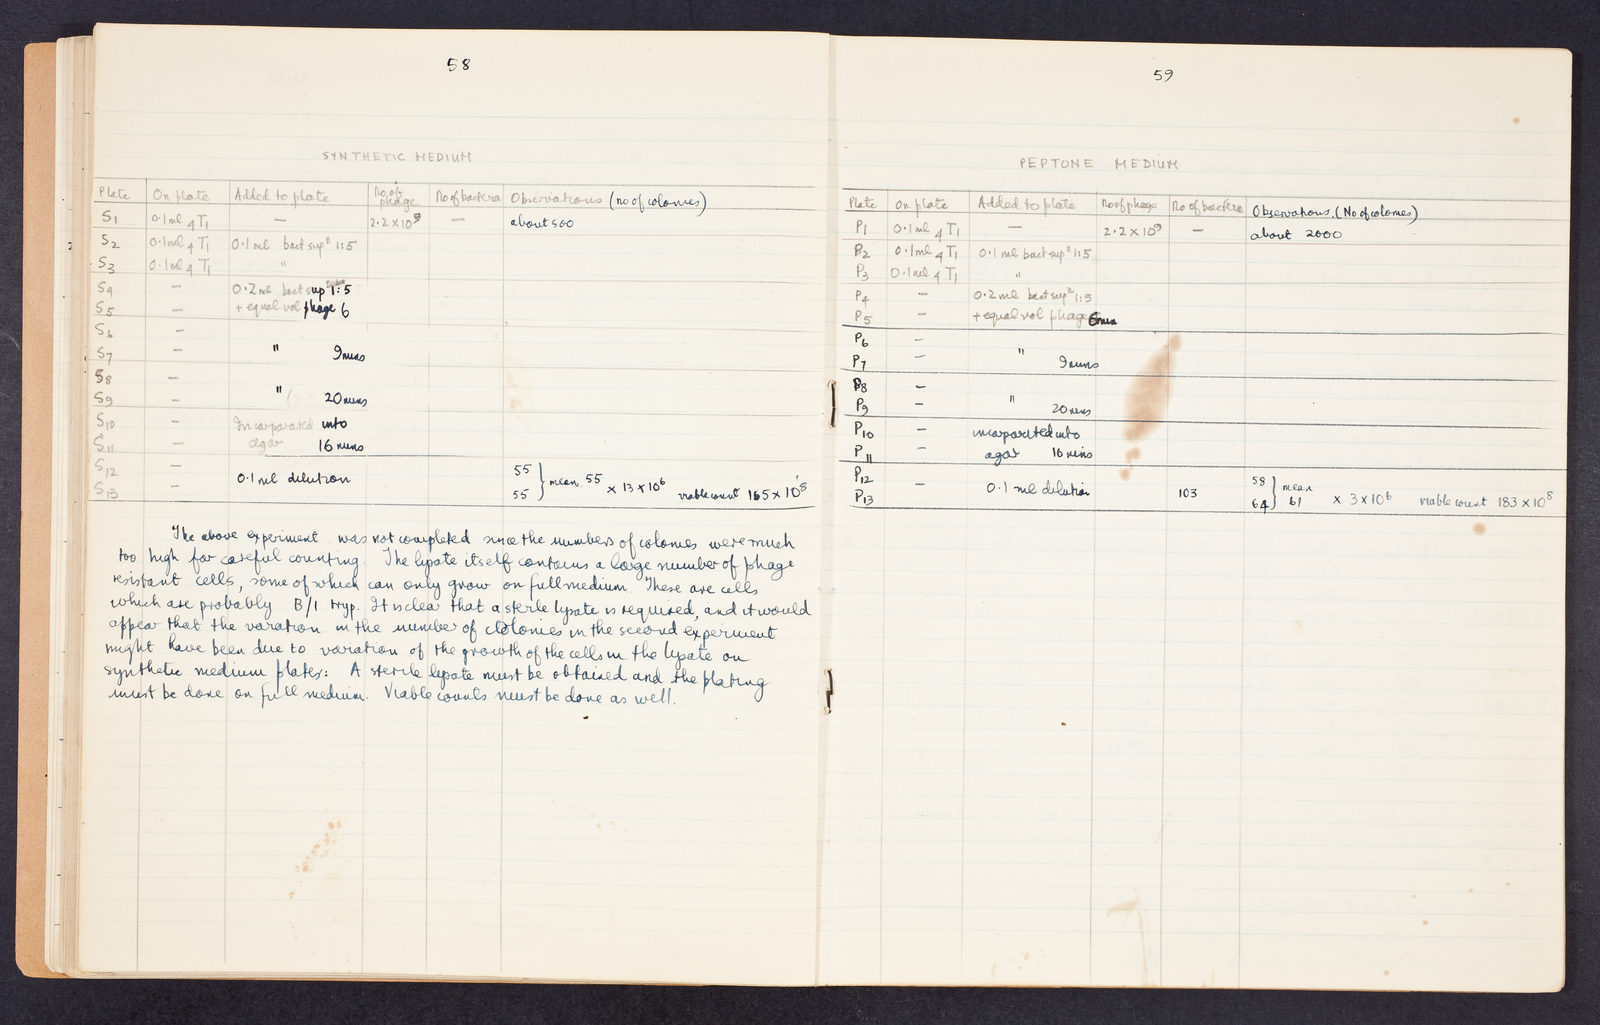 58
SYNTHETIC MEDIUM
Plate On plate Added to plate No. of phage No of bacteria Observations (no of colonies)
S1 0.1ml 4 T1 — 2.2 x 10^9 — about 500
S2 0.1ml 4 T1 0.1 ml bact supn 1:5
S3 0.1ml 4 T1 "
S4 — 0.2 ml bact sup 1:5
S5 — + equal vol phage 6
S6 —
S7 — " 9 mins
S8 —
S9 — " 20 mins
S10 — Incorporated into
S11 — agar 16 mins
S12 — 0.1 ml dilution 55
S13 — 55 } mean 55 x 13 x 10^6 viable count 165 x 10^8
The above experiment was not completed since the numbers of colonies were much
too high for careful counting. The lysate itself contains a large number of phage
resistant cells, some of which can only grow on full medium. These are cells
which are probably B/1 tryp. It is clear that a sterile lysate is required, and it would
appear that the variation in the number of colonies in the second experiment
might have been due to variation of the growth of the cells in the lysate on
synthetic medium plates: A sterile lysate must be obtained and the plating
must be done on full medium. Viable counts must be done as well.
59
PEPTONE MEDIUM
Plate On plate Added to plate No of phage No of bacteria Observations. (No of colonies)
P1 0.1ml 4 T1 — 2.2 x 10^9 — about 2000
P2 0.1ml 4 T1 0.1 ml bact supn 1:5
P3 0.1ml 4 T1 "
P4 — 0.2 ml bact supn 1:5
P5 — + equal vol phage 6 min
P6 —
P7 — " 9 mins
P8 —
P9 — " 20 mins
P10 — incorporated into
P11 — agar 16 mins
P12 — 0.1 ml dilution 103 58
P13 64 } mean 61 x 3 x 10^6 viable count 183 x 10^8